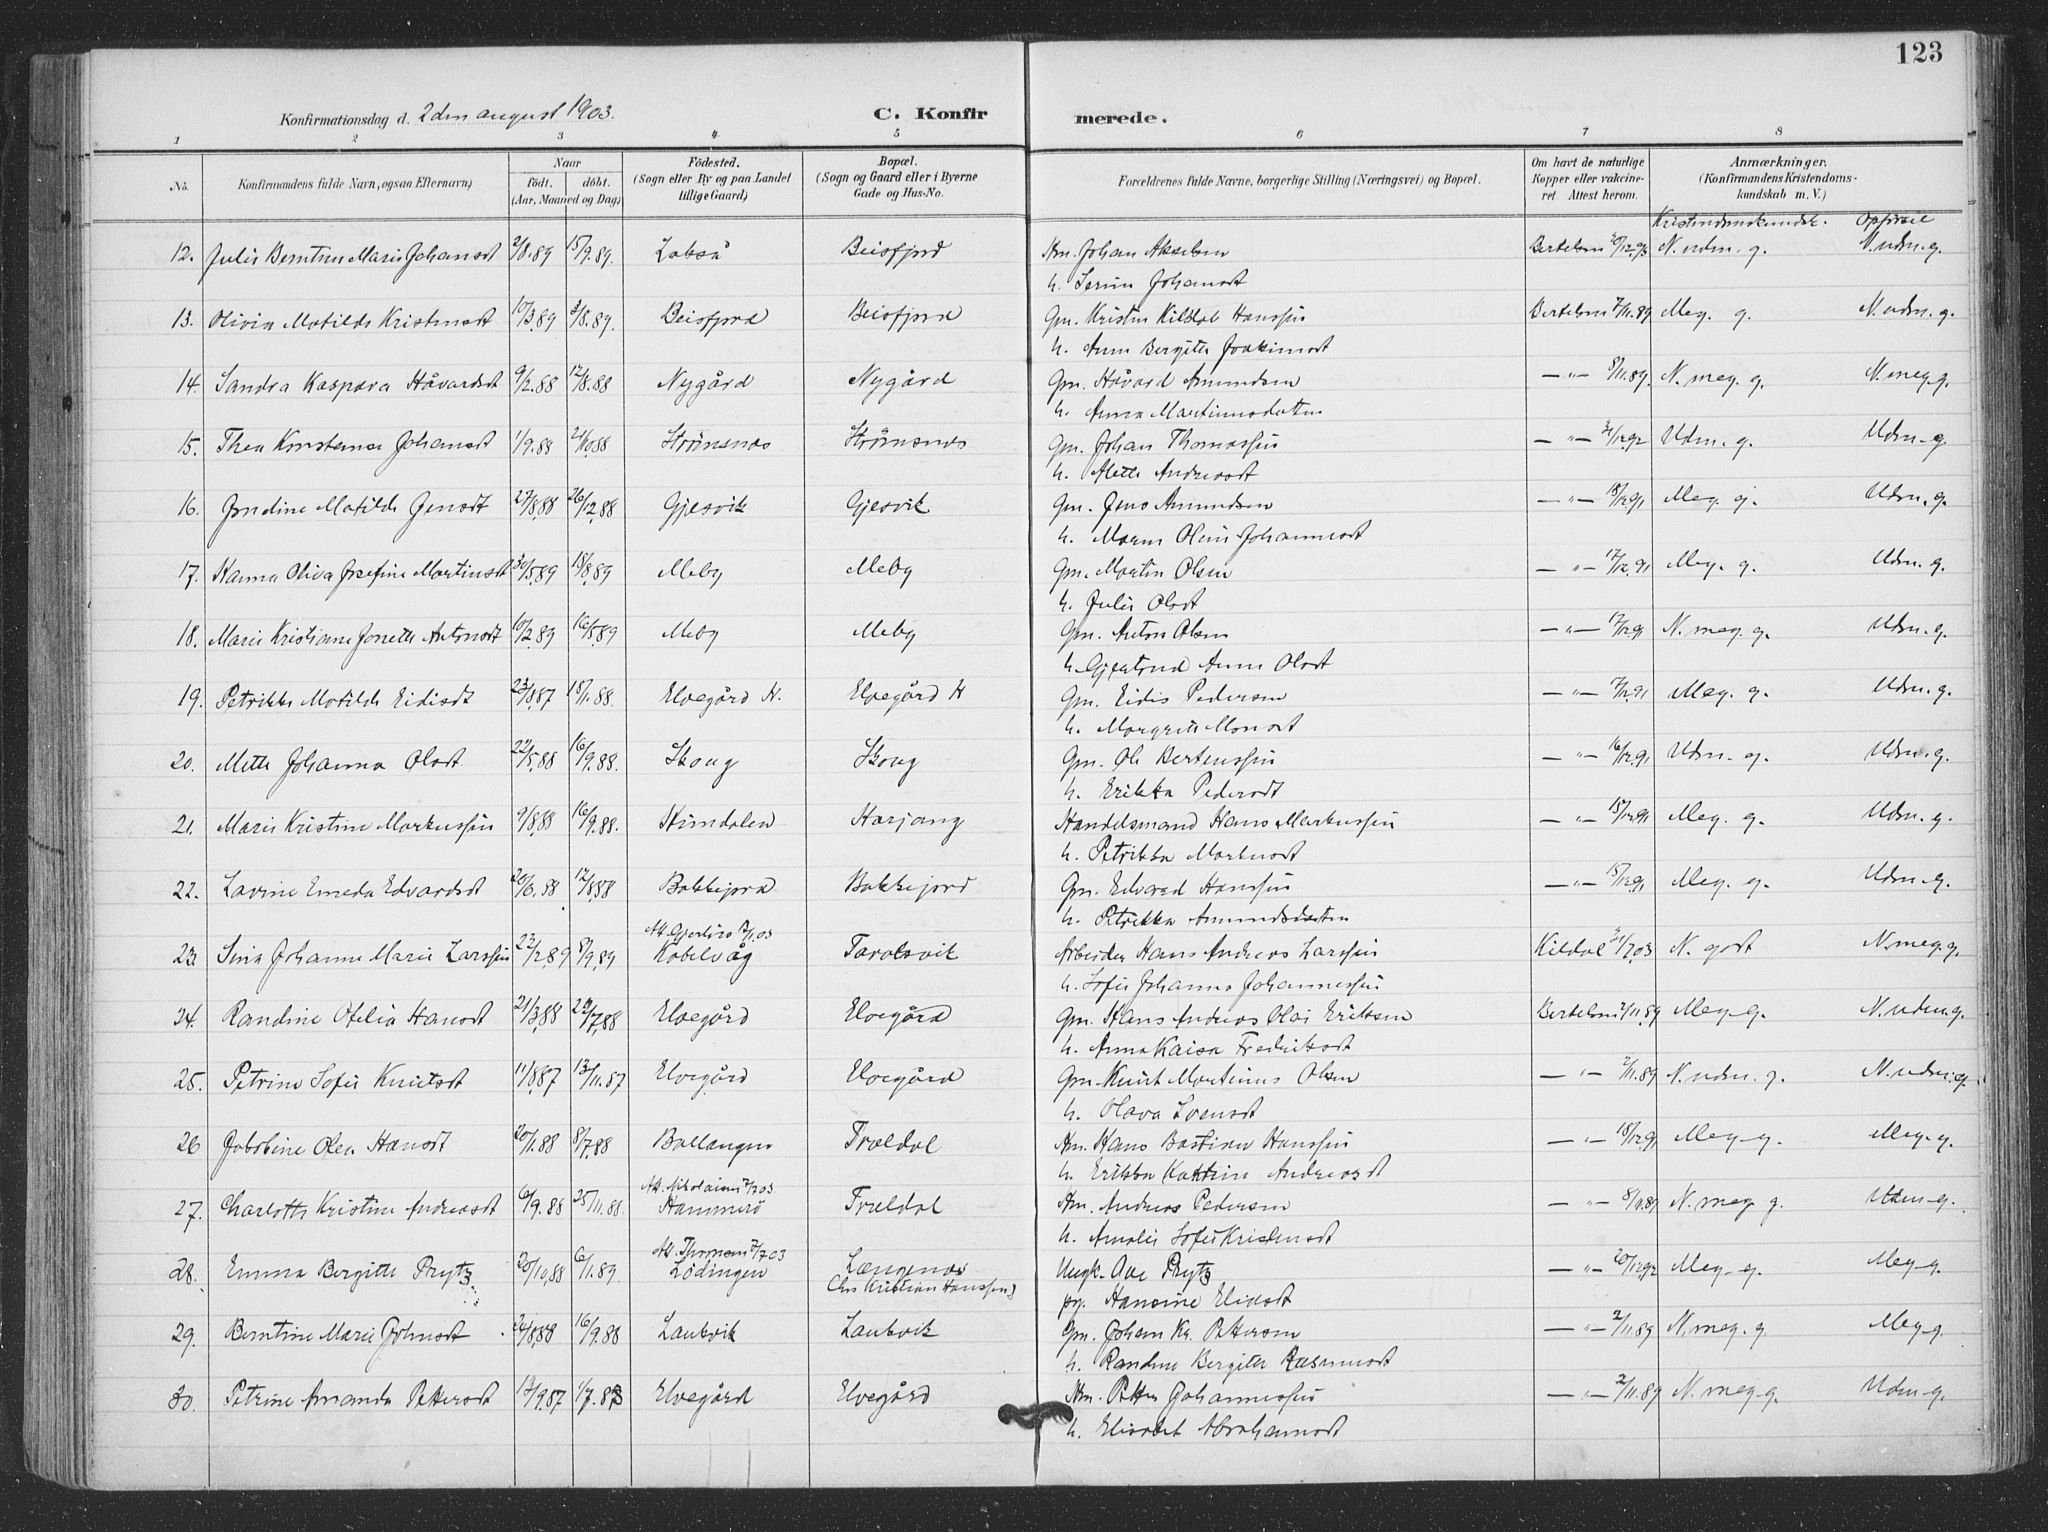 123
Konfirmationsdag d. 2den august 1903.
C. Konfirmerede.
1 2 3 4 5 6 7 8
No.
Konfirmandens fulde Navn, ogsaa Efternavn,
Naar
födt. döbt.
(Aar, Maaned og Dag)
Födested.
(Sogn eller By og paa Landet
tillige Gaard)
Bopæl.
(Sogn og Gaard eller i Byerne
Gade og Hus-No.
Forældrenes fulde Navne, borgerlige Stilling (Næringsvei) og Bopæl.
Om havt de naturlige
Kopper eller vakcine-
ret Attest herom.
Anmærkninger.
(Konfirmandens Kristendoms-
kundskab m. V.)
Kristendomskundsk. Opförsel
12. Julie Berntine Marie Johansdt 2/8.89 15/9.89. Beisfjord Km. Johan Akselsen Bertelsen N. udm. g. N. udm. g.
h. Serine Johansdt
13. Olivia Matilde Kristensdt 10/3.89 3/8.89. Beisfjord Beisfjord Gm. Kristen Kildal Hanssen Bertelsen 7/11.89 Meg. g. N. udm. g.
h. Anne Bergitte Joakimsdt
14. Sandra Kaspara Håvardsdt 9/2.88 12/8.88 Nygård Nygård Gm. Håvard Amundsen — " — 8/11.89. N. meg. g. N. meg. g.
h. Anna Martinusdatter
15. Thea Konstanse Johansdt 1/9.88 21/10.88 Strömsnes Strömsnes Gm. Johan Thomassen — " — 31/12.92 Udm. g. Udm. g.
h. Mette Andreasdt
16. Jondine Matilde Jensdt 27/8.88 26/12.88 Gjesvik Gjesvik Gm. Jens Amundsen — " — 18/12.91 Meg. g. Udm. g.
h. Maren Oline Johannesdt
17. Hanna Oliva Josefine Martinsdt 30/5.89 18/8.89 Meby Meby Gm. Martin Olsen — " — 17/12.91 Meg. g. Udm. g.
h. Julie Olsdt
18. Marie Kristiane Jonette Antonsdt 10/2.89 16/5.89 Meby Meby Gm. Anton Olsen — " — 17/12.91 N. meg. g. Udm. g.
h. Gjertrud Anne Olsdt
19. Petrikke Matilde Eidisdt 23/10.87 15/1.88 Elvegård H. Elvegård H Gm. Eidis Pedersen — " — 17/12.91 Meg. g. Udm. g.
h. Margrete Monsdt
20. Mette Johanna Olsdt 22/5.88 16/9.88. Skoug Skoug Gm. Ole Bertenssen — " — 16/12.91 Udm. g. Udm. g.
h. Erikka Pedersdt
21. Marie Kristine Markussen 9/8.88 16/9.88. Skindalen Harjang Handelsmand Hans Markussen — " — 15/12.91 Meg. g. Udm. g.
h. Petrikka Markusdt
22. Lavine Emeda Edvardsdt 20/6.88 12/8.88 Bokkejord Bokkejord Gm. Edvard Hanssen — " — 15/12.91 Meg. g. Udm. g.
h. Petrikka Amundsdatter
23. Sina Johanne Marie Larssen 22/12.89 8/9.89 Kabelvåg Taraldsvik Arbeider Hans Andreas Larssen Kildal 31/7.03 N. godt N. meg. g.
h. Sofie Johanna Johannessen
24. Randine Ofelia Hansdt 21/3.88 22/7.88 Elvegård Elvegård Gm. Hans Andreas Olai Eriksen Bertelsen 2/11.89 Meg. g. N. udm. g.
h. Anna Kaisa Fredriksdt
25. Petrine Sofie Knutsdt 11/8.87 13/11.87 Elvegård Elvegård Gm. Knut Martinus Olsen — " — 2/11.89 N. udm. g. N. udm. g.
h. Olava Svensdt
26 Jakobine Olea Hansdt 20/1.88 8/7.88 Ballangen Trældal Km. Hans Bastian Hanssen — " — 18/12.91 Meg. g. Meg. g.
h. Erikka Katrine Andreasdt
27. Charlotte Kristine Andreasdt 6/9.88 25/11.88. Att. Nikolaisen 7/7.03 Hammerö Trældal Km. Andreas Pedersen — " — 8/11.89 N. meg. g. Udm. g.
h. Amalie Sofie Kristensdt
28. Emma Bergitte Prytz 20/10.88 6/1.89. Lödingen Længenes Ungk. Ove Prytz — " — 20/12.92 Meg. g. Meg. g.
(hos Kristian Hanssen) pg. Hansine Eliasdt
29. Berntine Marie Johansdt 24/8.88 16/9.88 Laukvik Laukvik Gm. Johan Kr. Pettersen — " — 2/11.89 N. meg. g. Meg. g.
h. Randine Bergitte Rasmusdt
30. Petrine Amanda Pettersdt 13/9.87 1/7.88 Elvegård Elvegård Km. Petter Johannessen — " — 2/11.89 N. meg. g. Udm. g.
h. Elisabet Abrahamsdt